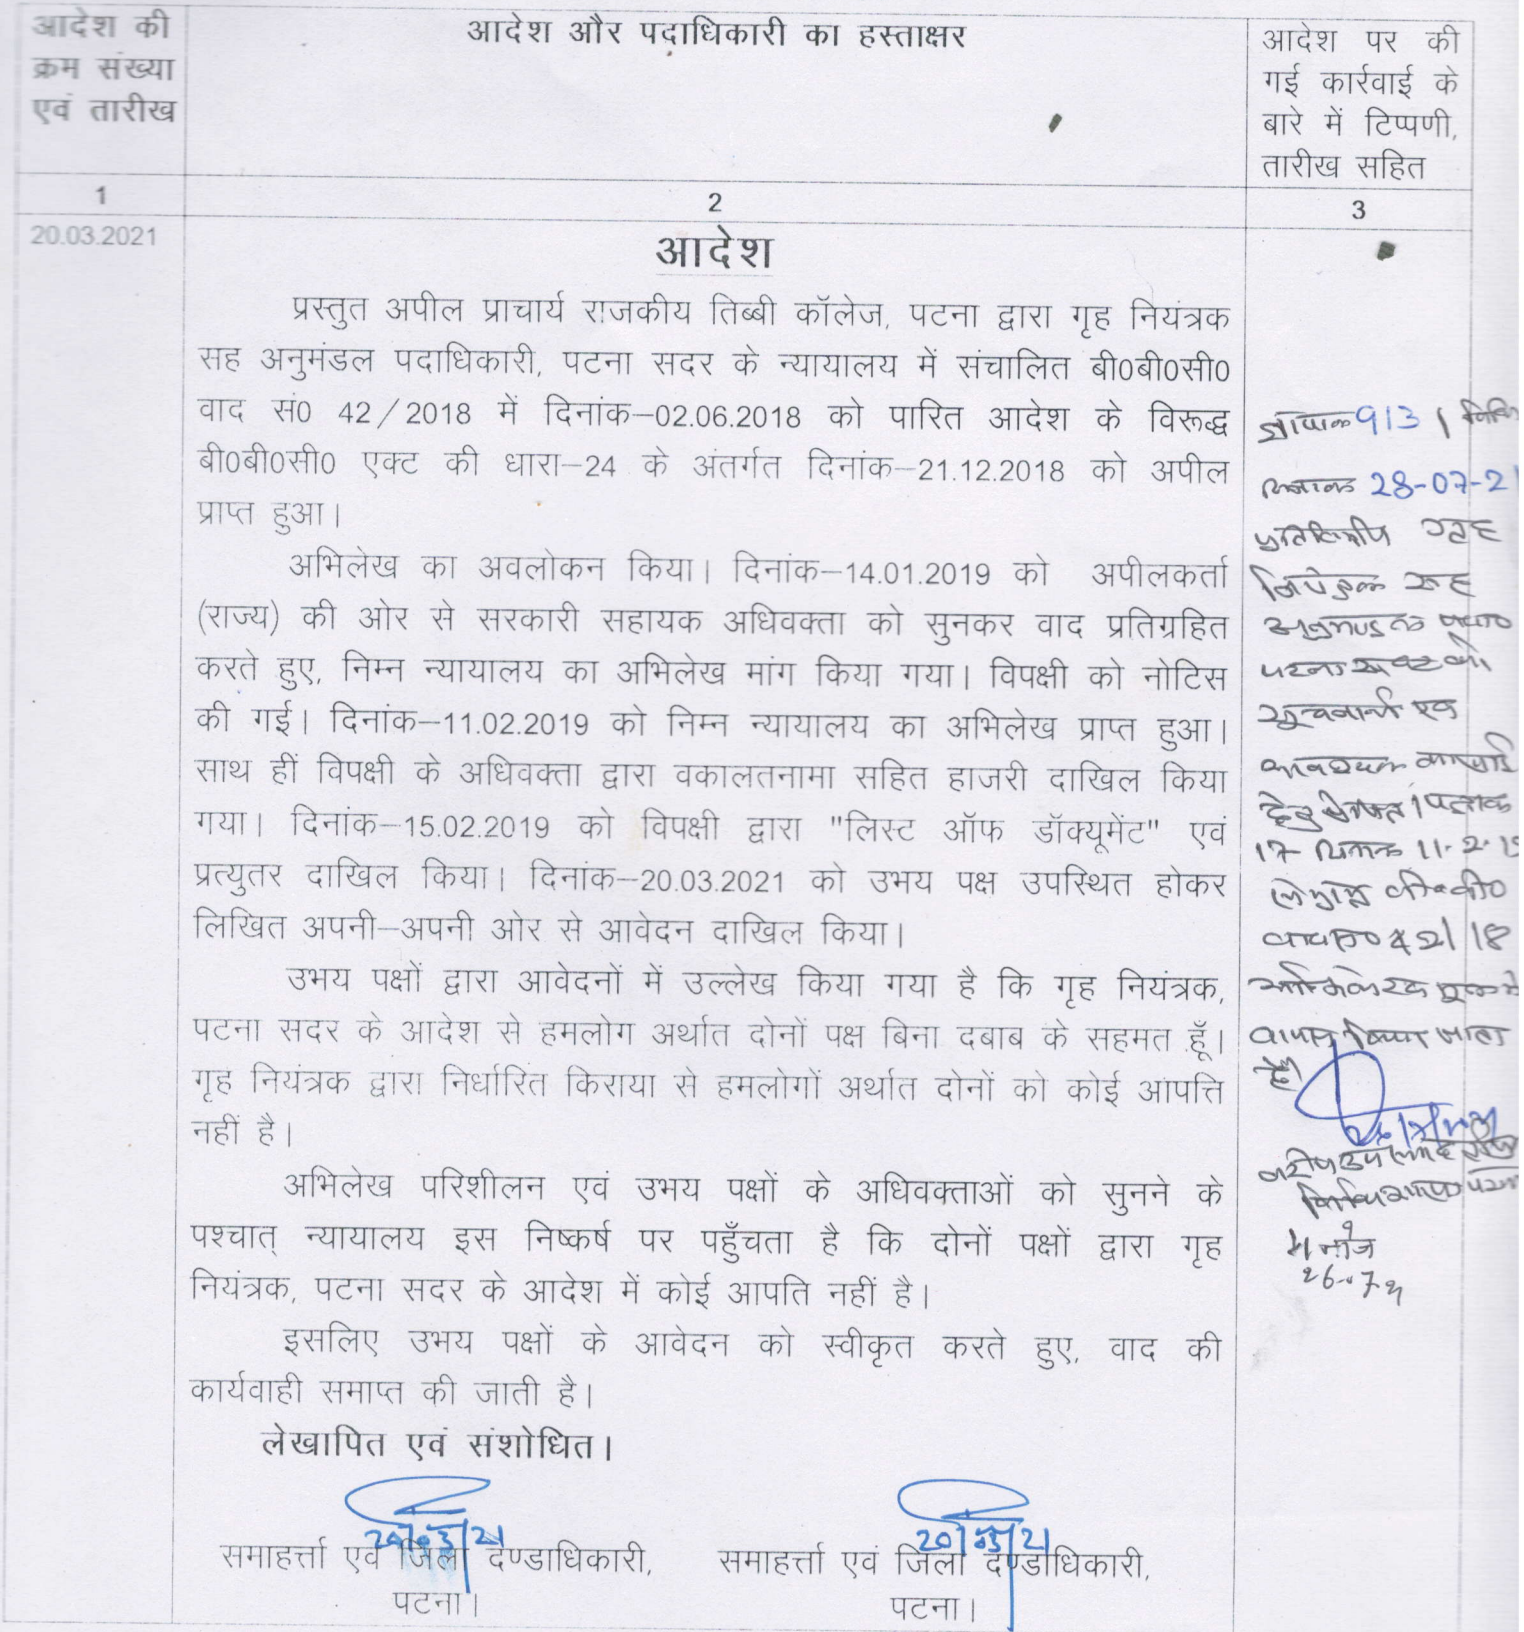 आदेश की
क्रम संख्या
एवं तारीख
आदेश और पदाधिकारी का हस्ताक्षर
आदेश पर की
गई कार्रवाई के
बारे में टिप्पणी,
तारीख सहित
1
2
3
20.03.2021
आदेश
प्रस्तुत अपील प्राचार्य राजकीय तिब्बी कॉलेज, पटना द्वारा गृह नियंत्रक
सह अनुमंडल पदाधिकारी, पटना सदर के न्यायालय में संचालित बी0बी0सी0
वाद सं0 42/2018 में दिनांक–02.06.2018 को पारित आदेश के विरूद्ध
बी0बी0सी0 एक्ट की धारा–24 के अंतर्गत दिनांक–21.12.2018 को अपील
प्राप्त हुआ।
अभिलेख का अवलोकन किया। दिनांक–14.01.2019 को अपीलकर्ता
(राज्य) की ओर से सरकारी सहायक अधिवक्ता को सुनकर वाद प्रतिग्रहित
करते हुए, निम्न न्यायालय का अभिलेख मांग किया गया। विपक्षी को नोटिस
की गई। दिनांक–11.02.2019 को निम्न न्यायालय का अभिलेख प्राप्त हुआ।
साथ हीं विपक्षी के अधिवक्ता द्वारा वकालतनामा सहित हाजरी दाखिल किया
गया। दिनांक–15.02.2019 को विपक्षी द्वारा "लिस्ट ऑफ डॉक्यूमेंट" एवं
प्रत्युतर दाखिल किया। दिनांक–20.03.2021 को उभय पक्ष उपस्थित होकर
लिखित अपनी–अपनी ओर से आवेदन दाखिल किया।
उभय पक्षों द्वारा आवेदनों में उल्लेख किया गया है कि गृह नियंत्रक,
पटना सदर के आदेश से हमलोग अर्थात दोनों पक्ष बिना दबाब के सहमत हूँ।
गृह नियंत्रक द्वारा निर्धारित किराया से हमलोगों अर्थात दोनों को कोई आपत्ति
नहीं है।
अभिलेख परिशीलन एवं उभय पक्षों के अधिवक्ताओं को सुनने के
पश्चात् न्यायालय इस निष्कर्ष पर पहुँचता है कि दोनों पक्षों द्वारा गृह
नियंत्रक, पटना सदर के आदेश में कोई आपति नहीं है।
इसलिए उभय पक्षों के आवेदन को स्वीकृत करते हुए, वाद की
कार्यवाही समाप्त की जाती है।
लेखापित एवं संशोधित।
20/03/21
समाहर्त्ता एवं जिला दण्डाधिकारी,
पटना।
20/03/21
समाहर्त्ता एवं जिला दण्डाधिकारी,
पटना।
ज्ञापांक 913 /
दिनांक 28-07-21
प्रतिलिपि गृह
नियंत्रक सह
पटना सदर को
सूचनार्थ एवं
आवश्यक
हेतु प्रेषित।
17 दिनांक 11.2.19
42/18
अभिलेख मूल में
वापस किया जाता
है।
मनोज